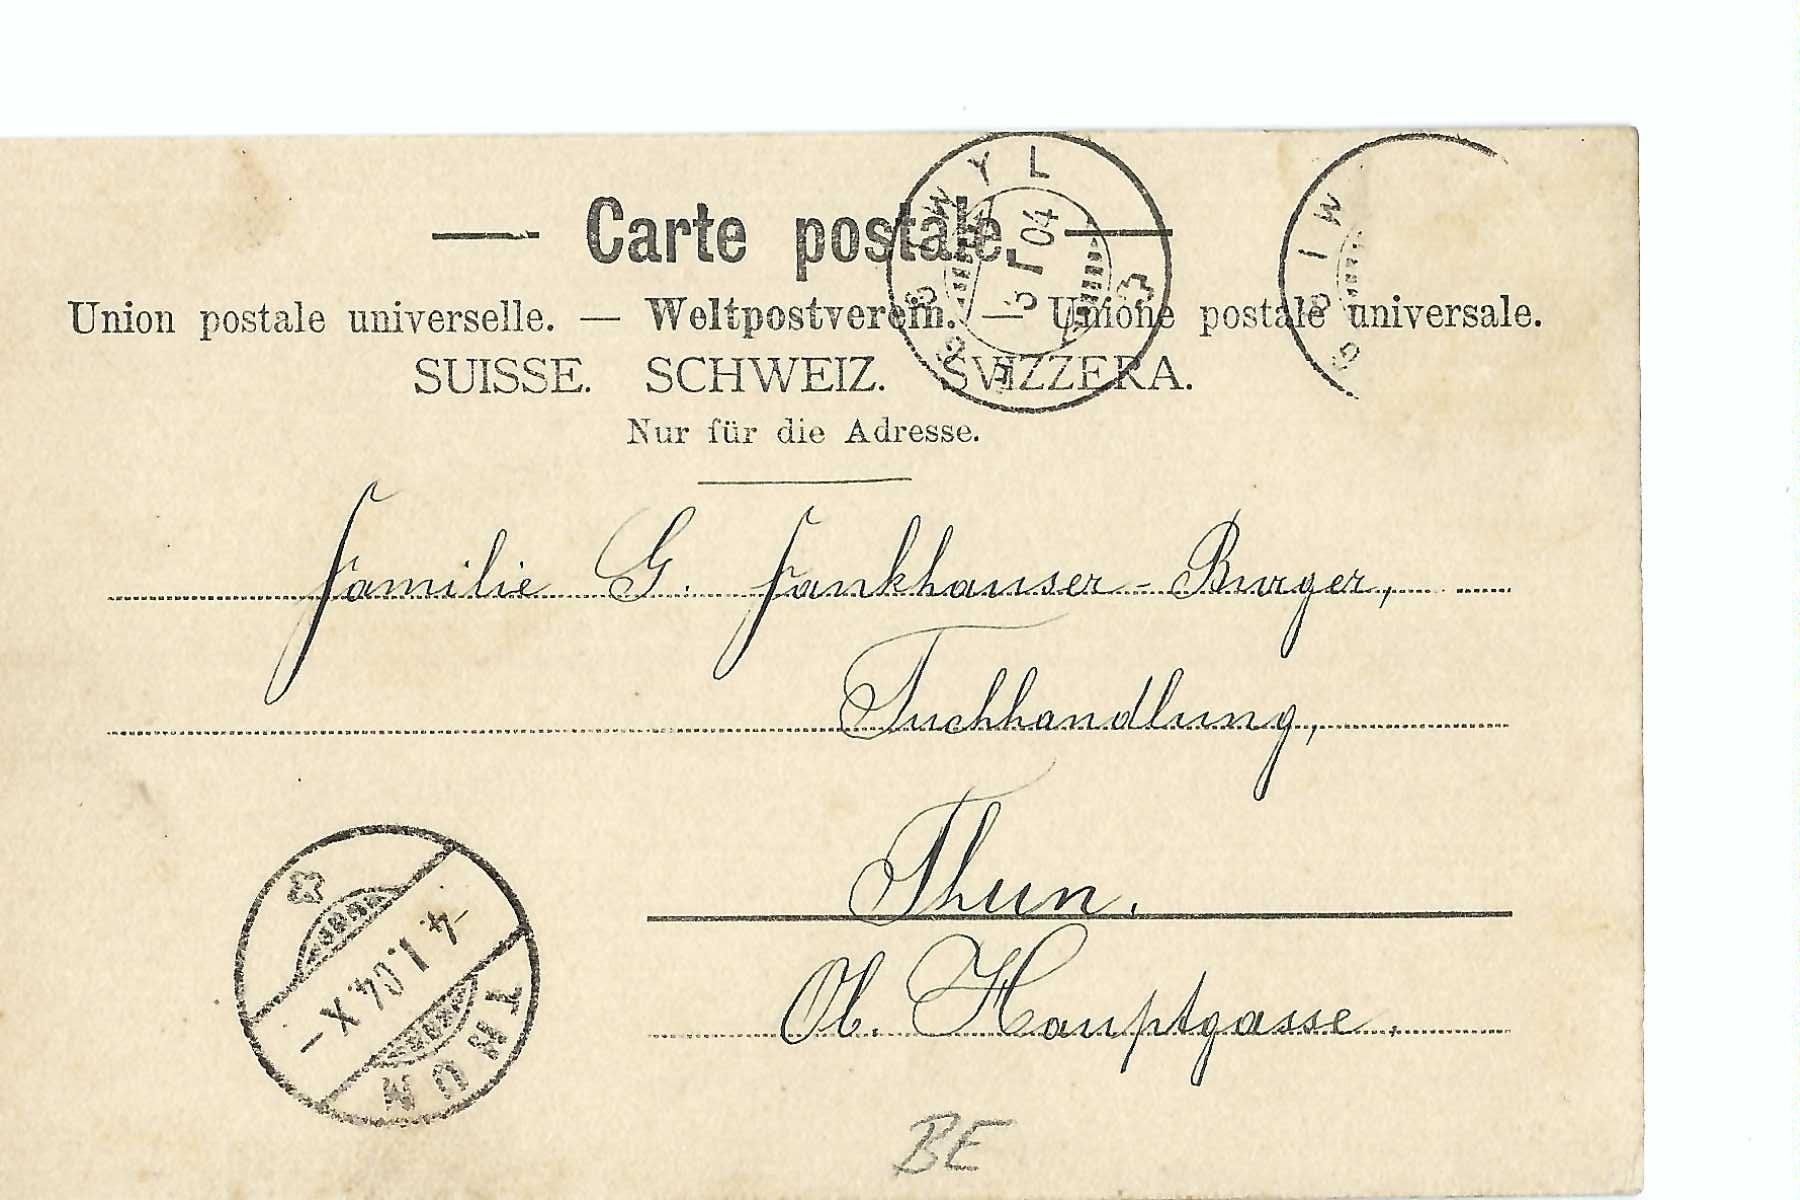 — Carte postale. —
Union postale universelle. — Weltpostverein. — Unione postale universale.
SUISSE. SCHWEIZ. SVIZZERA.
Nur für die Adresse.
Familie G. Fankhauser-Burger,
Tuchhandlung,
Thun.
Ob. Hauptgasse.
EGGIWYL
3 I 04
GGIW
THUN
-4.I.04.X-
BE